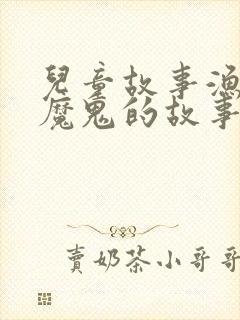 兒童故事漁
魔鬼的故事
賣奶茶小哥哥